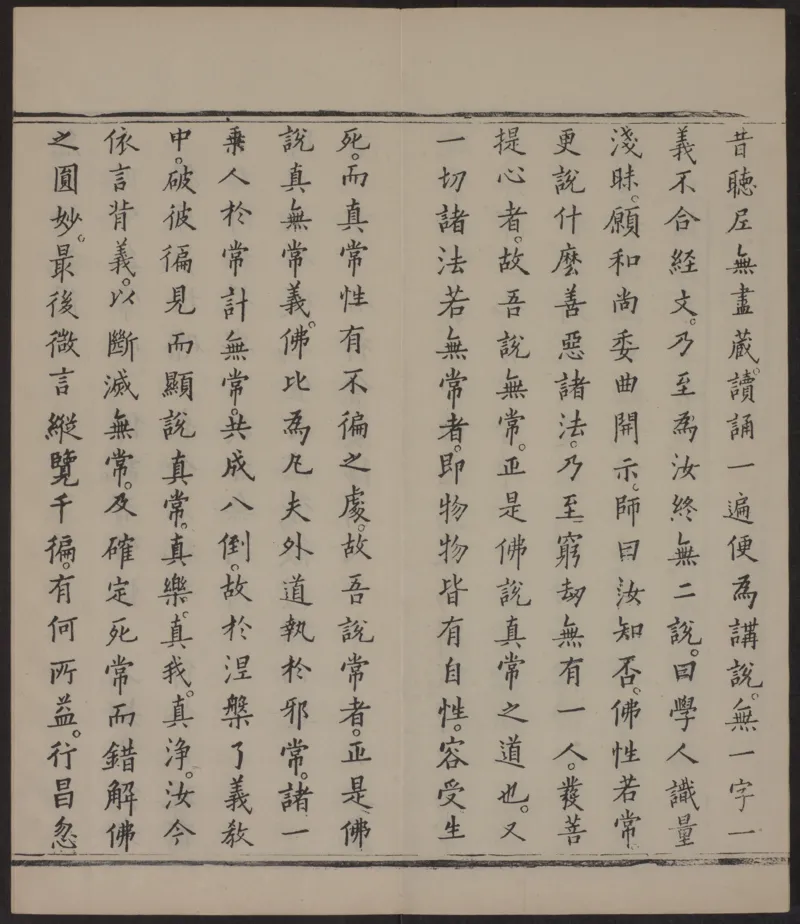 昔聽尼無盡藏。讀誦一遍便為講說。無一字一
義不合経文。乃至為汝終無二說。曰學人識量
淺昧。願和尚委曲開示。師曰汝知否。佛性若常
更說什麼善惡諸法。乃至窮劫無有一人。發菩
提心者。故吾說無常。正是佛說真常之道也。又
一切諸法若無常者。即物物皆有自性。容受生
死。而真常性有不徧之處。故吾說常者。正是佛
說真無常義。佛比為凡夫外道執於邪常。諸二
乗人於常計無常。共成八倒。故於涅槃了義教
中。破彼徧見而顯說真常。真樂。真我。真淨。汝今
依言背義。以斷滅無常。及確定死常而錯解佛
之圓妙。最後微言縱覽千徧。有何所益。行昌忽